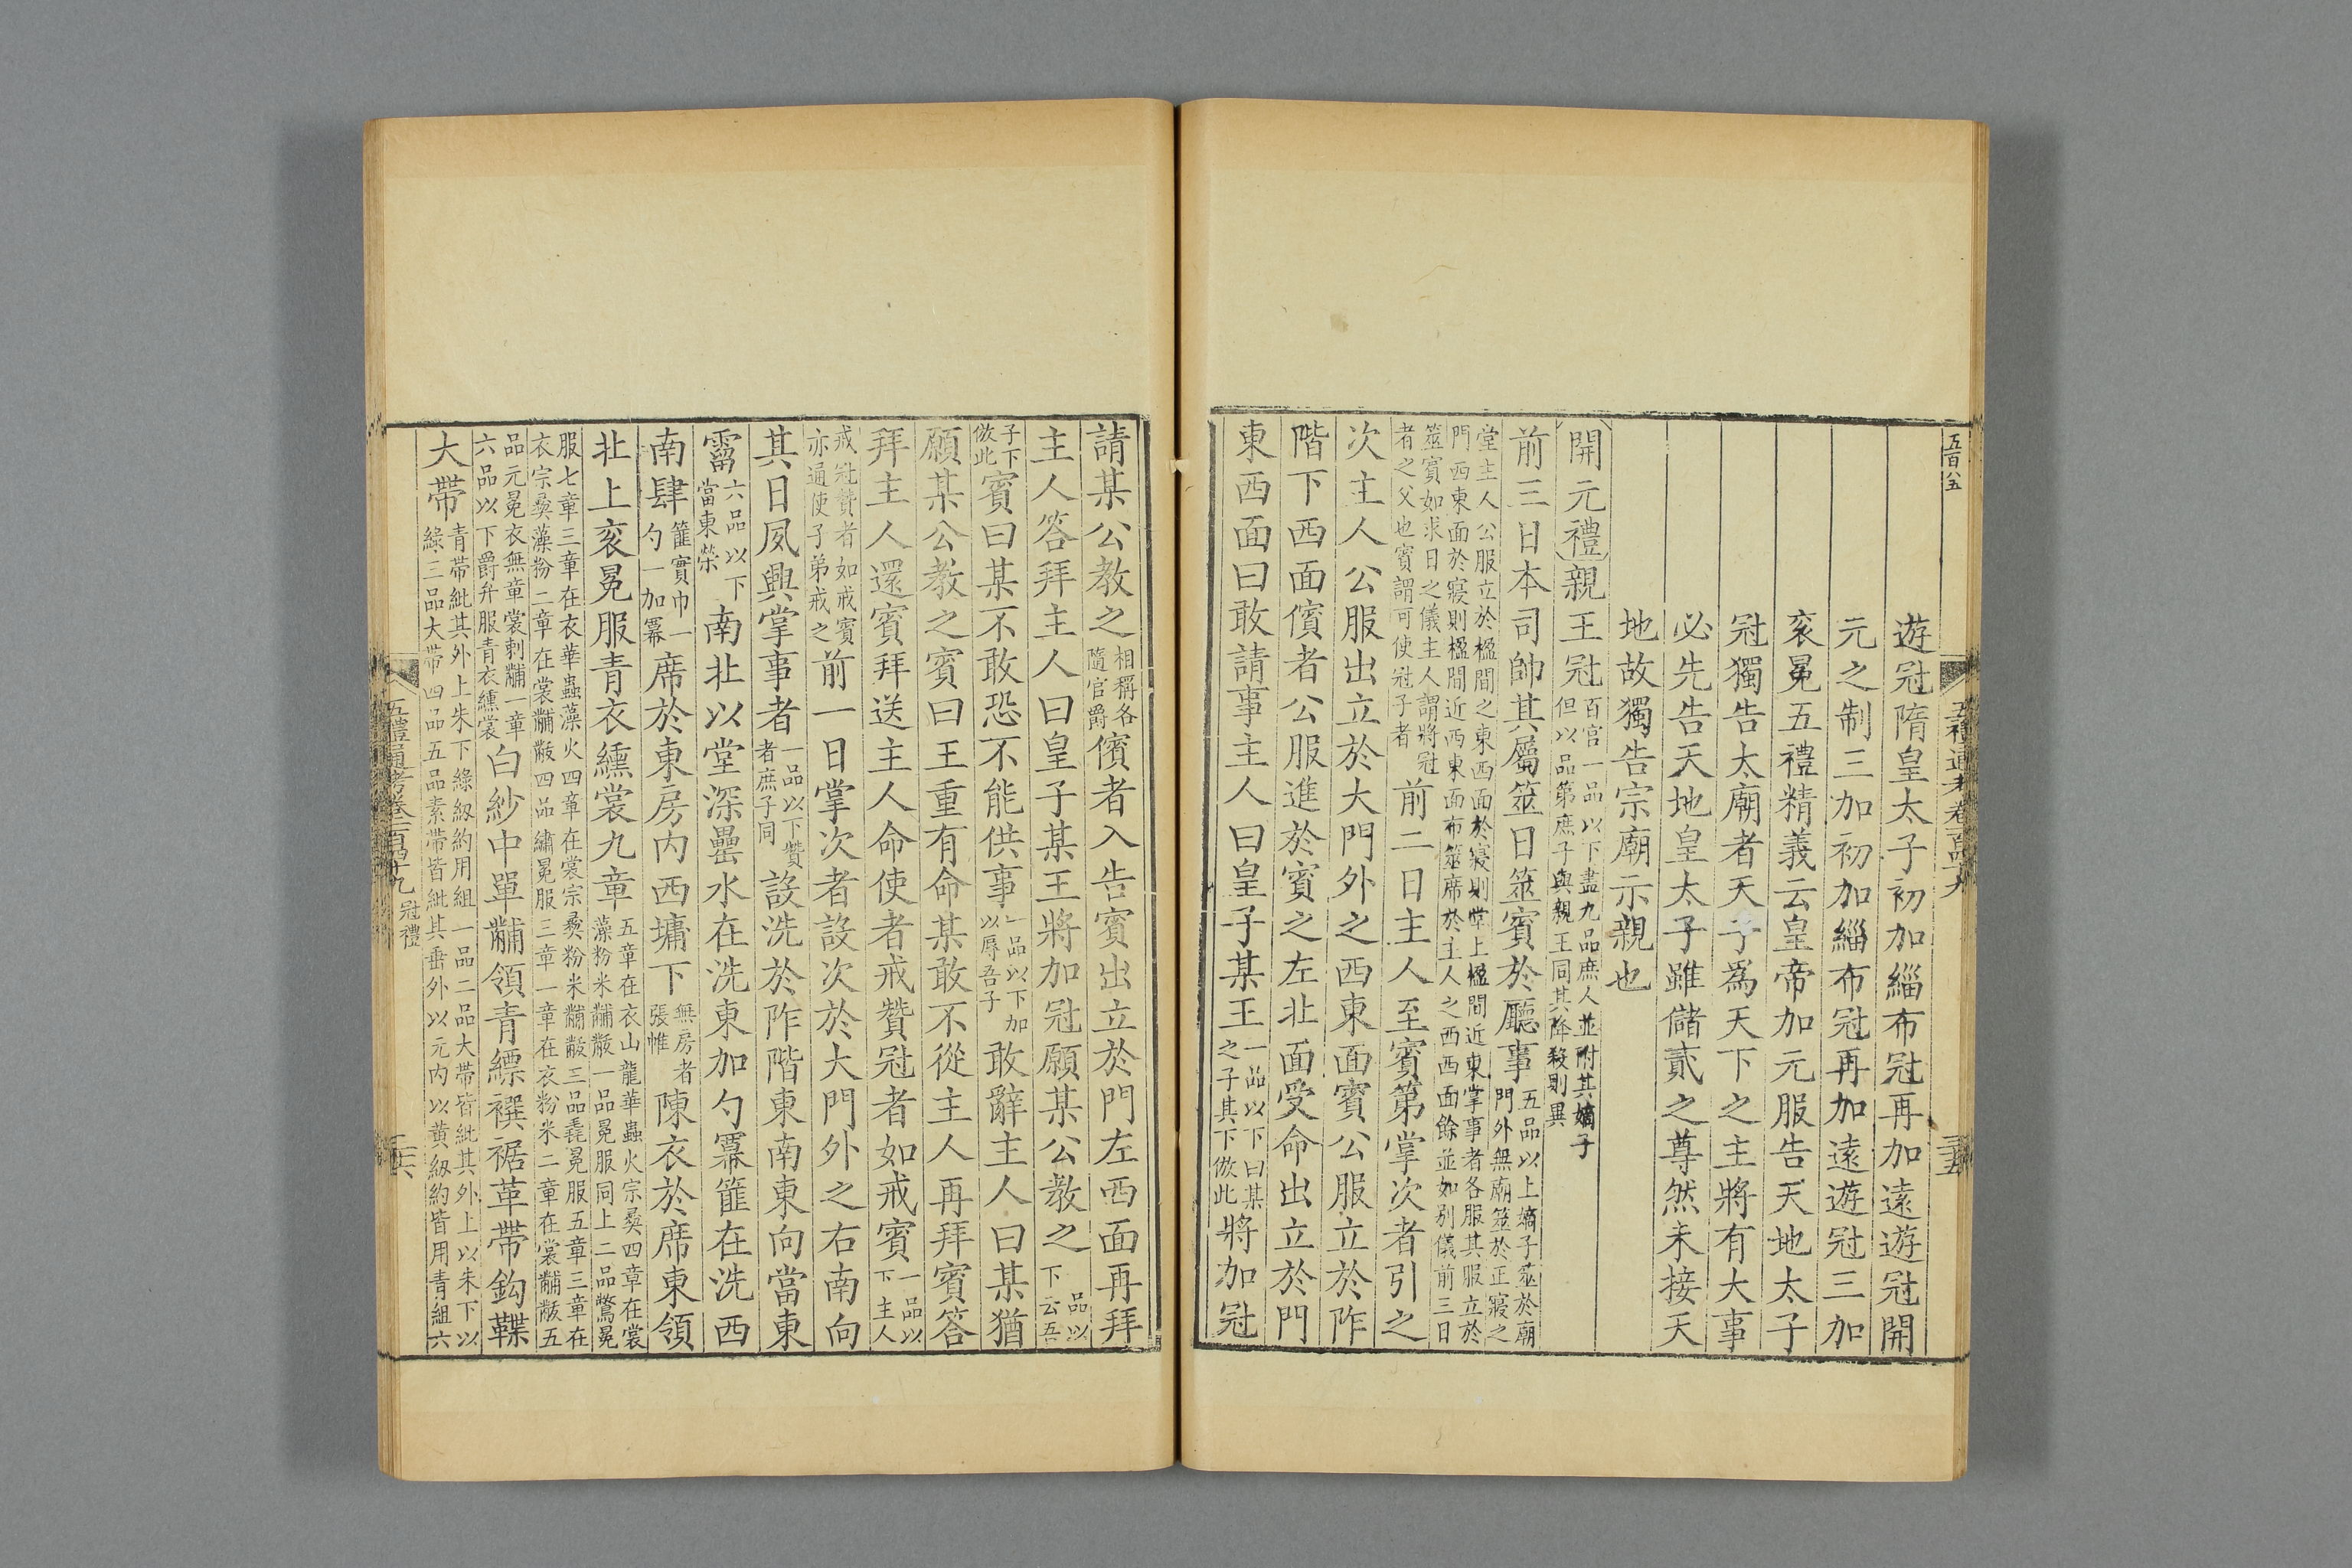 五百八五
五禮通考卷一百四十九
三五
遊冠隋皇太子初加緇布冠再加遠遊冠開
元之制三加初加緇布冠再加遠遊冠三加
衮冕五禮精義云皇帝加元服告天地太子
冠獨告太廟者天子爲天下之主將有大事
必先告天地皇太子雖儲貳之尊然未接天
地故獨告宗廟示親也
開元禮親王冠百官一品以下盡九品庶人並附其嫡子
但以品第庶子與親王同其降殺則異
前三日本司帥其屬筮日筮賓於廳事五品以上嫡子筮於廟
門外無廟筮於正寢之
堂主人公服立於楹間之東西面於寢則堂上楹間近東掌事者各服其服立於
門西東面於寢則楹間近西東面布筮席於主人之西西面餘並如别儀前三日
筮賓如求日之儀主人謂將冠
者之父也賓謂可使冠子者前二日主人至賓第掌次者引之
次主人公服出立於大門外之西東面賓公服立於阼
階下西面儐者公服進於賓之左北面受命出立於門
東西面曰敢請事主人曰皇子某王一品以下曰某
之子其下倣此將加冠
請某公教之相稱各
隨官爵儐者入告賓出立於門左西面再拜
主人答拜主人曰皇子某王將加冠願某公教之一品以
下云吾
子下
倣此賓曰某不敢恐不能供事一品以下加
以辱吾子敢辭主人曰某猶
願某公教之賓曰王重有命某敢不從主人再拜賓答
拜主人還賓拜送主人命使者戒贊冠者如戒賓一品以
下主人
戒冠贊者如戒賓
亦通使子弟戒之前一日掌次者設次於大門外之右南向
其日夙興掌事者一品以下贊
者庶子同設洗於阼階東南東向當東
霤六品以下
當東榮南北以堂深罍水在洗東加勺冪篚在洗西
南肆篚實巾一
勺一加冪席於東房内西墉下無房者
張帷陳衣於席東領
北上衮冕服青衣纁裳九章五章在衣山龍華蟲火宗彝四章在裳
藻粉米黼黻一品冕服同上二品鷩冕
服七章三章在衣華蟲藻火四章在裳宗彝粉米黼黻三品毳冕服五章三章在
衣宗彝藻粉二章在裳黼黻四品繡冕服三章一章在衣粉米二章在裳黼黻五
品元冕衣無章裳刺黼一章
六品以下爵弁服青衣纁裳白紗中單黼領青褾襈裾革帶鈎䚢
大帶青帶紕其外上朱下綠紐約用組一品二品大帶皆紕其外上以朱下以
綠三品大帶四品五品素帶皆紕其垂外以元内以黃紐約皆用青組六
五禮通考卷一百四十九 冠禮
三六